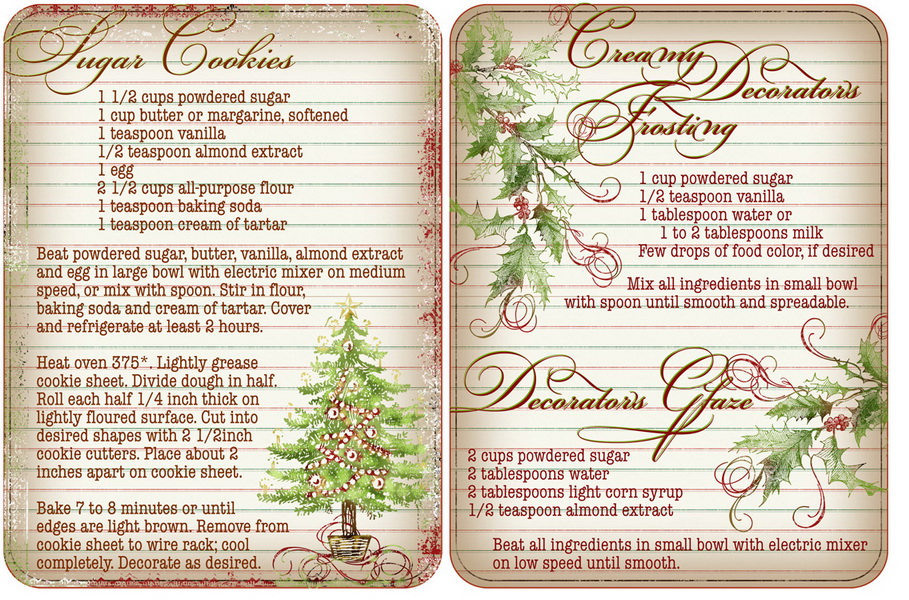 Sugar Cookies
1 1/2 cups powdered sugar
1 cup butter or margarine, softened
1 teaspoon vanilla
1/2 teaspoon almond extract
1 egg
2 1/2 cups all-purpose flour
1 teaspoon baking soda
1 teaspoon cream of tartar
Beat powdered sugar, butter, vanilla, almond extract
and egg in large bowl with electric mixer on medium
speed, or mix with spoon. Stir in flour,
baking soda and cream of tartar. Cover
and refrigerate at least 2 hours.
Heat oven 375*. Lightly grease
cookie sheet. Divide dough in half.
Roll each half 1/4 inch thick on
lightly floured surface. Cut into
desired shapes with 2 1/2inch
cookie cutters. Place about 2
inches apart on cookie sheet.
Bake 7 to 8 minutes or until
edges are light brown. Remove from
cookie sheet to wire rack; cool
completely. Decorate as desired.
Creamy
Decorator's
Frosting
1 cup powdered sugar
1/2 teaspoon vanilla
1 tablespoon water or
1 to 2 tablespoons milk
Few drops of food color, if desired
Mix all ingredients in small bowl
with spoon until smooth and spreadable.
Decorator's Glaze
2 cups powdered sugar
2 tablespoons water
2 tablespoons light corn syrup
1/2 teaspoon almond extract
Beat all ingredients in small bowl with electric mixer
on low speed until smooth.